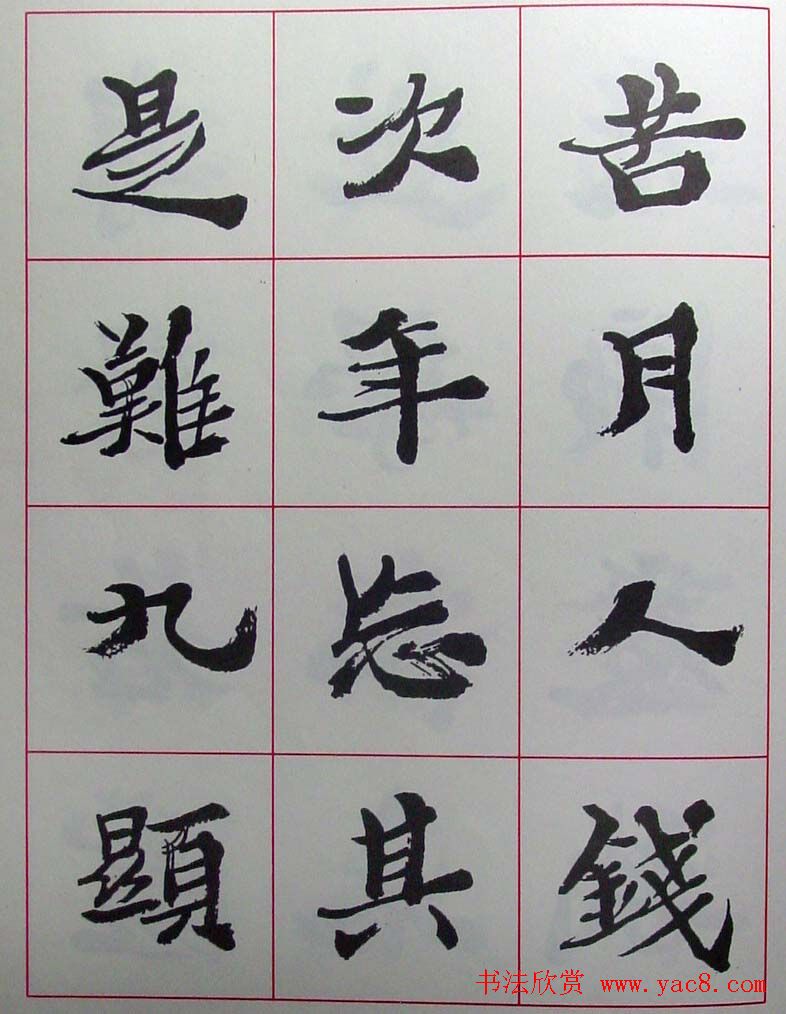 苦月人錢
次年忘其
是難九顕
书法欣赏 www.yac8.com